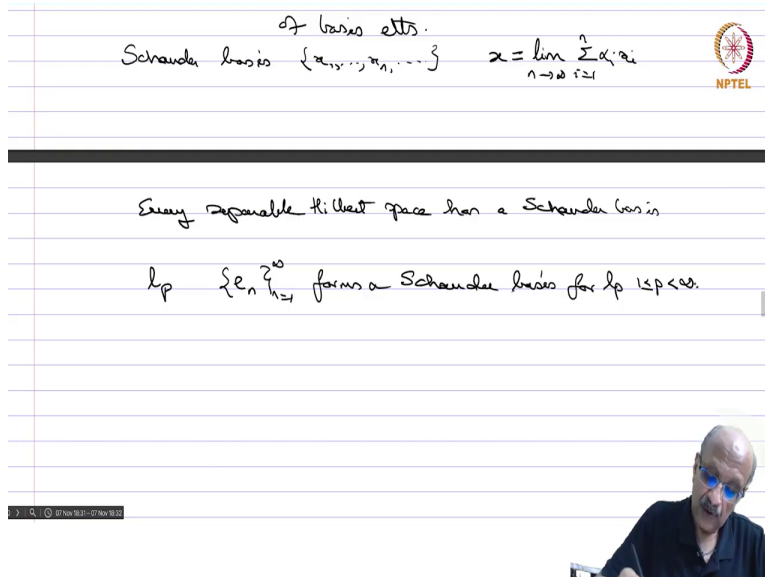 of basis elts.
Schauder basis {x₁, ..., xₙ, ....} x = lim n→∞ Σ i=1 n αᵢ xᵢ
NPTEL
Every separable Hilbert space has a Schauder basis
lp {eₙ}∞n=1 forms a Schauder basis for lp 1≤p<∞.
07 Nov 18:31 – 07 Nov 18:32